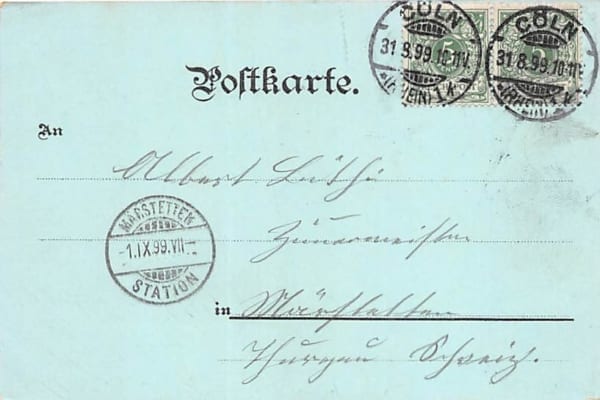 CÖLN CÖLN
5 5
31.8.99.10-11V. 31.8.99.10-11V.
*(RHEIN) 1 k. *(RHEIN) 1 k.
Postkarte.
An
Albert Lüthi
MÄRSTETTEN
1.IX.99.VII
STATION
in Märstetten
Thurgau Schweiz.